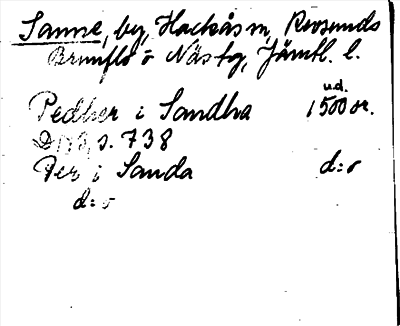 Sanne, by, Hackås sn, Revsunds
Brunflo o Näs tg, Jämtl. l.
Pedher i Sandha u.d. 1500 sr.
s. 738
Per i Sanda d:o
d:o